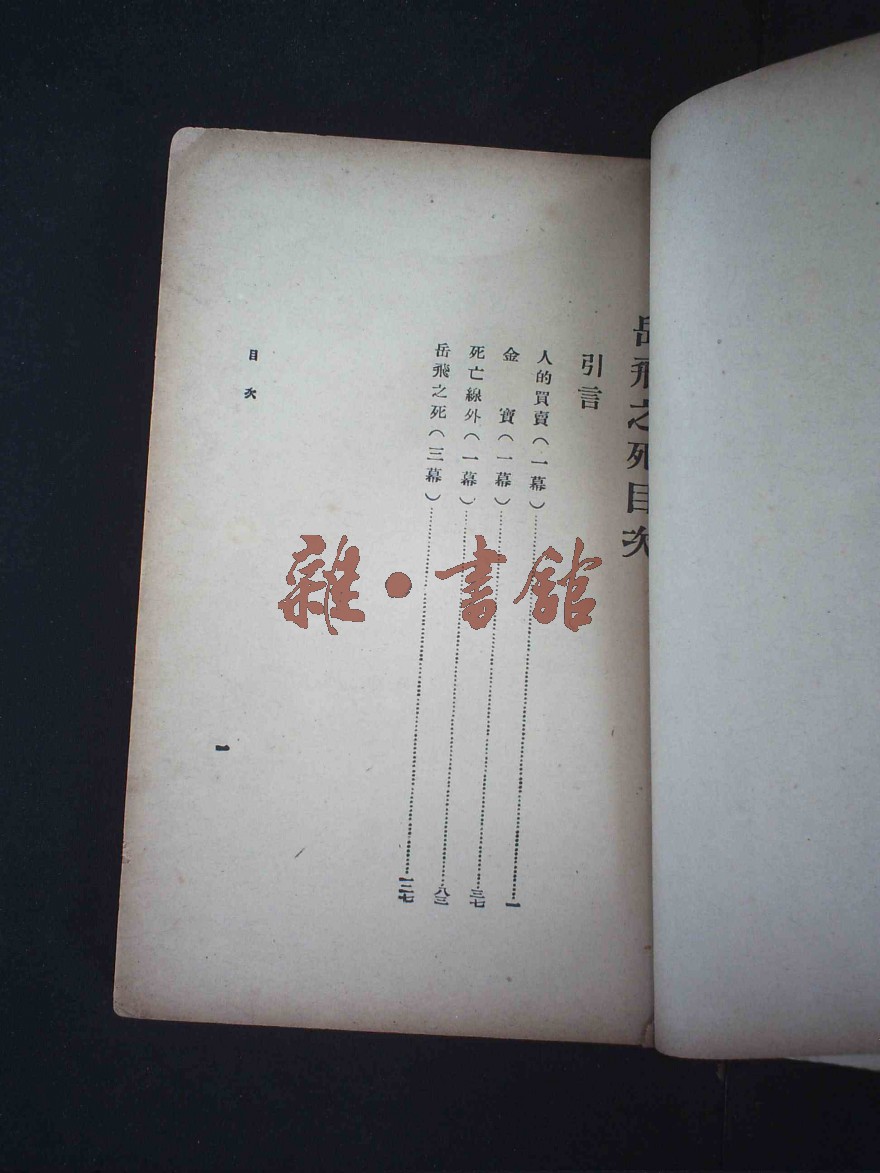 岳飛之死目次
引言
人的買賣(一幕)……一
金寶(一幕)……三七
死亡線外(一幕)……八三
岳飛之死(三幕)……一二七
目次
一
雜·書館